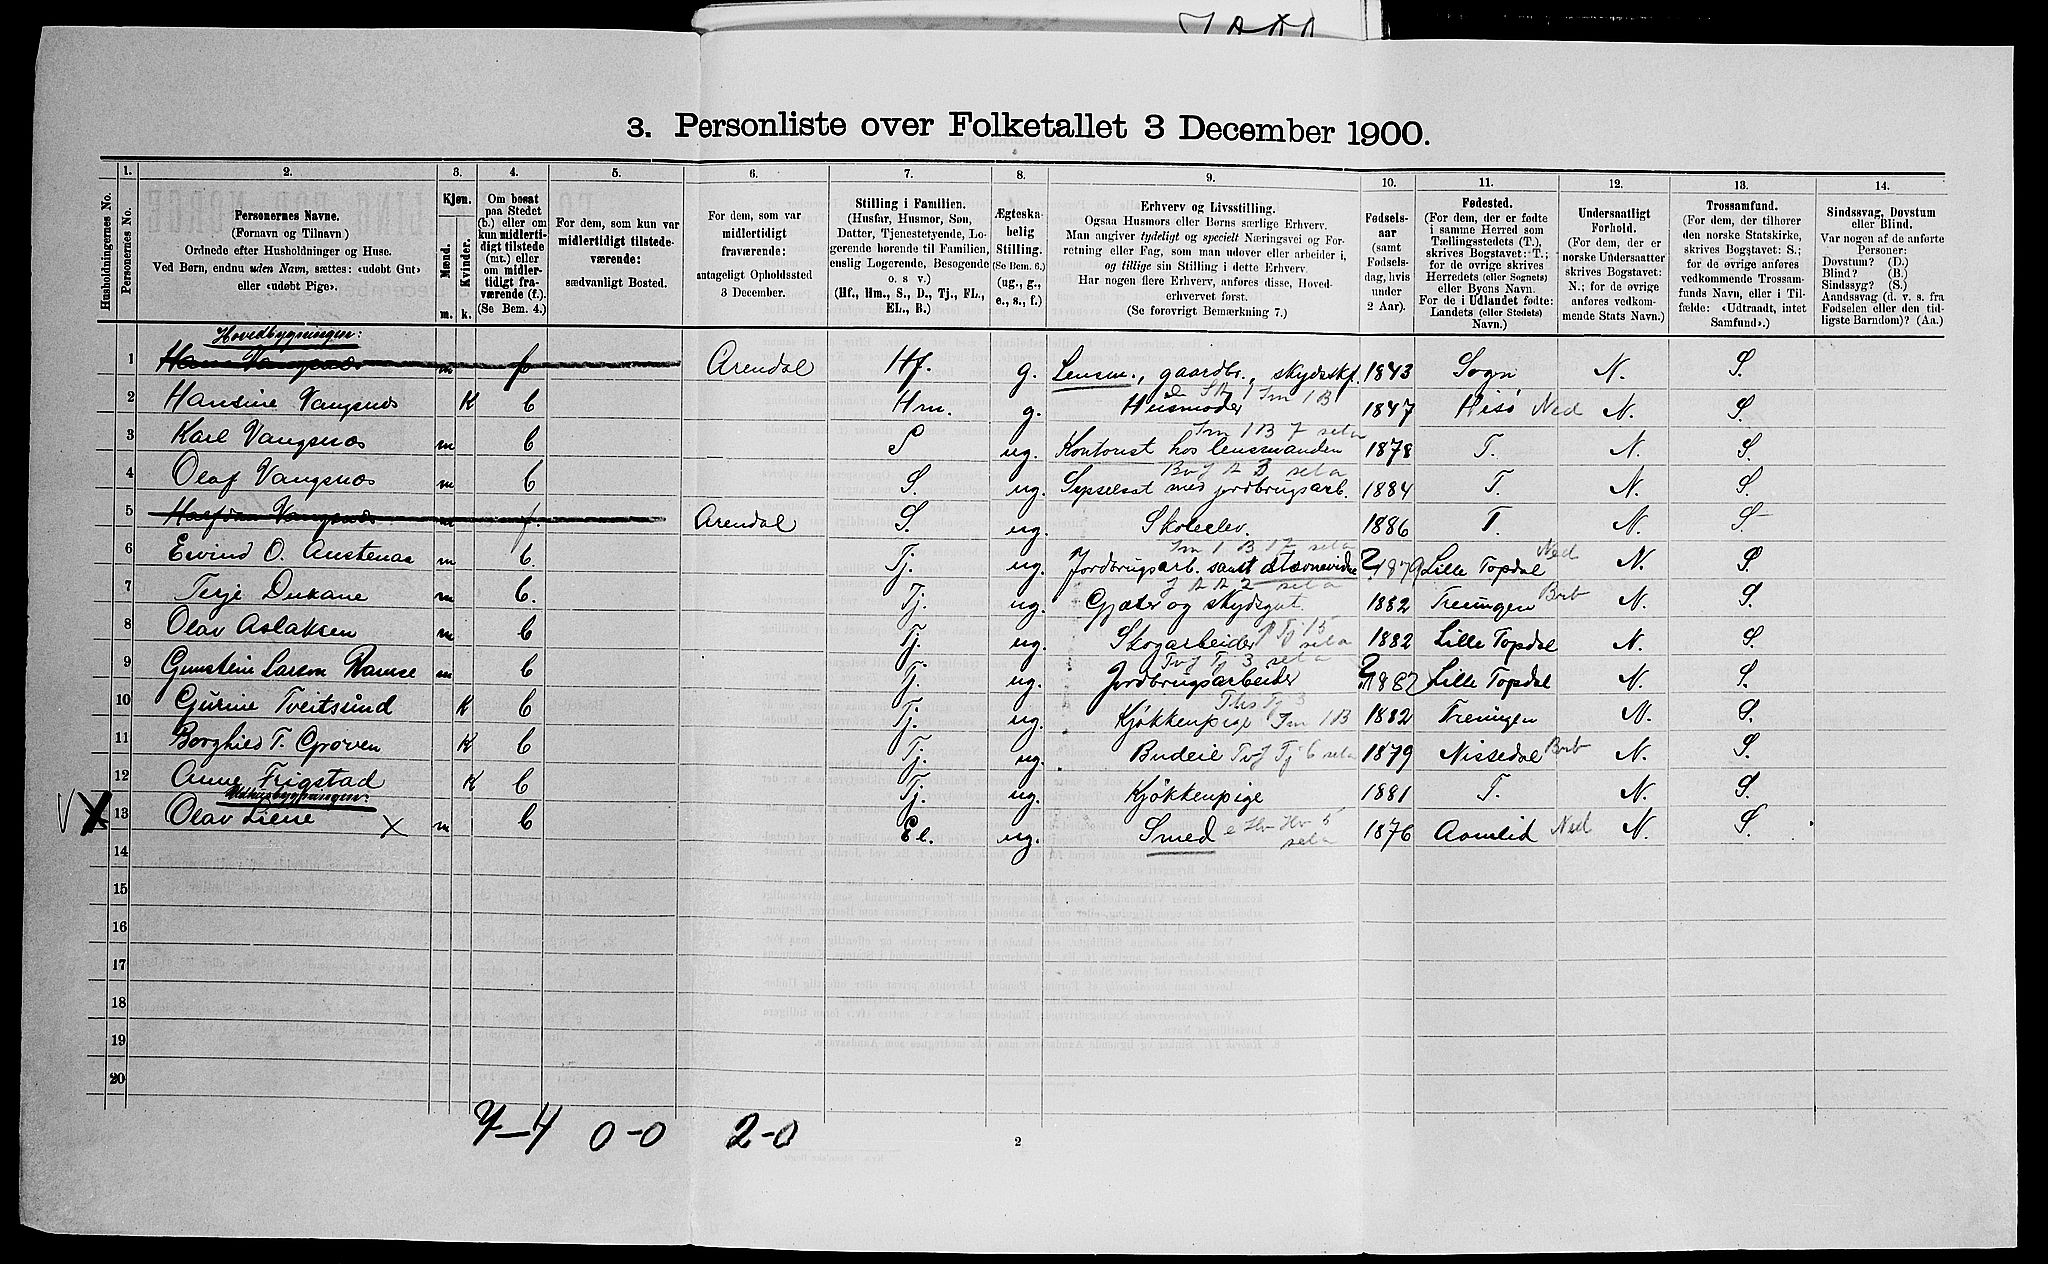 3. Personliste over Folketallet 3 December 1900.
1. 2. 3. 4. 5. 6. 7. 8. 9. 10. 11. 12. 13. 14.
Husholdningernes No.
Personernes No.
Personernes Navne.
(Fornavn og Tilnavn.)
Ordnede efter Husholdninger og Huse.
Ved Børn, endnu uden Navn, sættes: «udøbt Gut»
eller «udøbt Pige».
Kjøn.
Mænd.
Kvinder.
m. k.
Om bosat
paa Stedet
(b.) eller om
kun midlerti-
digt tilstede
(mt.) eller
om midler-
tidigt fra-
værende (f.)
(Se Bem. 4.)
For dem, som kun var
midlertidigt tilstede-
værende:
sædvanligt Bosted.
For dem, som var
midlertidigt
fraværende:
antageligt Opholdssted
3 December.
Stilling i Familien.
(Husfar, Husmor, Søn,
Datter, Tjenestetyende, Lo-
gerende hørende til Familien,
enslig Logerende, Besøgende
o. s. v.)
(Hf., Hm., S., D., Tj., FL.,
EL., B.)
Ægteska-
belig
Stilling.
(Se Bem. 6.)
(ug., g.,
e., s., f.)
Erhverv og Livsstilling.
Ogsaa Husmors eller Børns særlige Erhverv.
Man angiver tydeligt og specielt Næringsvei og For-
retning eller Fag, som man udover eller arbeider i,
og tillige sin Stilling i dette Erhverv.
Har nogen flere Erhverv, anføres disse, Hoved-
erhvervet først.
(Se forøvrigt Bemærkning 7.)
Fødsels-
aar
(samt
Fødsels-
dag, hvis
under
2 Aar).
Fødested.
(For dem, der er fødte
i samme Herred som
Tællingsstedets (T.),
skrives Bogstavet: T.;
for de øvrige skrives
Herredets (eller Sognets)
eller Byens Navn.
For de i Udlandet fødte:
Landets (eller Stedets)
Navn.)
Undersaatligt
Forhold.
(For dem, der er
norske Undersaatter
skrives Bogstavet:
N.; for de øvrige
anføres vedkom-
mende Stats Navn.)
Trossamfund.
(For dem, der tilhører
den norske Statskirke,
skrives Bogstavet: S.;
for de øvrige anføres
vedkommende Trossam-
funds Navn, eller i Til-
fælde: «Udtraadt, intet
Samfund».)
Sindssvag, Døvstum
eller Blind.
Var nogen af de anførte
Personer:
Døvstum? (D.)
Blind? (B.)
Sindssyg? (S.)
Aandssvag (d. v. s. fra
Fødselen eller den tid-
ligste Barndom)? (Aa.)
Hovedbygningen:
1 Hans Vangsnæs m f Arendal Hf. g. Lensm., gaardbr., skydsskf. 1843 Sogn N. S.
2 Hansine Vangsnæs K b Hm. g. Husmoder 1847 Hisø Ned N. S.
3 Karl Vangsnæs m b S ug. Kontorist hos lensmanden 1878 T. N. S.
4 Olaf Vangsnæs m b S. ug. Sysselsat med jordbrugsarb. 1884 T. N. S.
5 Halfdan Vangsnæs m f. Arendal S. ug. Skoleelev. 1886 T N. S
6 Eivind O. Austenaa m b. Tj. ug. Jordbrugsarb. samt 1879 Lille Topdal Ned N. S.
7 Terje Dukane m b. Tj. ug. Gjæter og skydsgut. 1882 Treungen Brb N. S.
8 Olav Aslaksen m b Tj. ug. Skogarbeider 1882 Lille Topdal N. S.
9 Gunstein Larson Ramse m b Tj. ug. Jordbrugsarbeider 1882 Lille Topdal N. S.
10 Gurine Tveitsund K b Tj. ug. Kjøkkenpige 1882 Treungen N. S.
11 Borghild T. Grøven K b Tj. ug. Budeie 1879 Nissedal Brb N. S.
12 Anne Frigstad K b Tj. ug. Kjøkkenpige 1881 T. N. S.
Udhusbygningen:
13 Olav Liene X m b El. ug. Smed 1876 Aamlid Ned N. S.
14
15
16
17
18
19
20
7-4 0-0 2-0
2